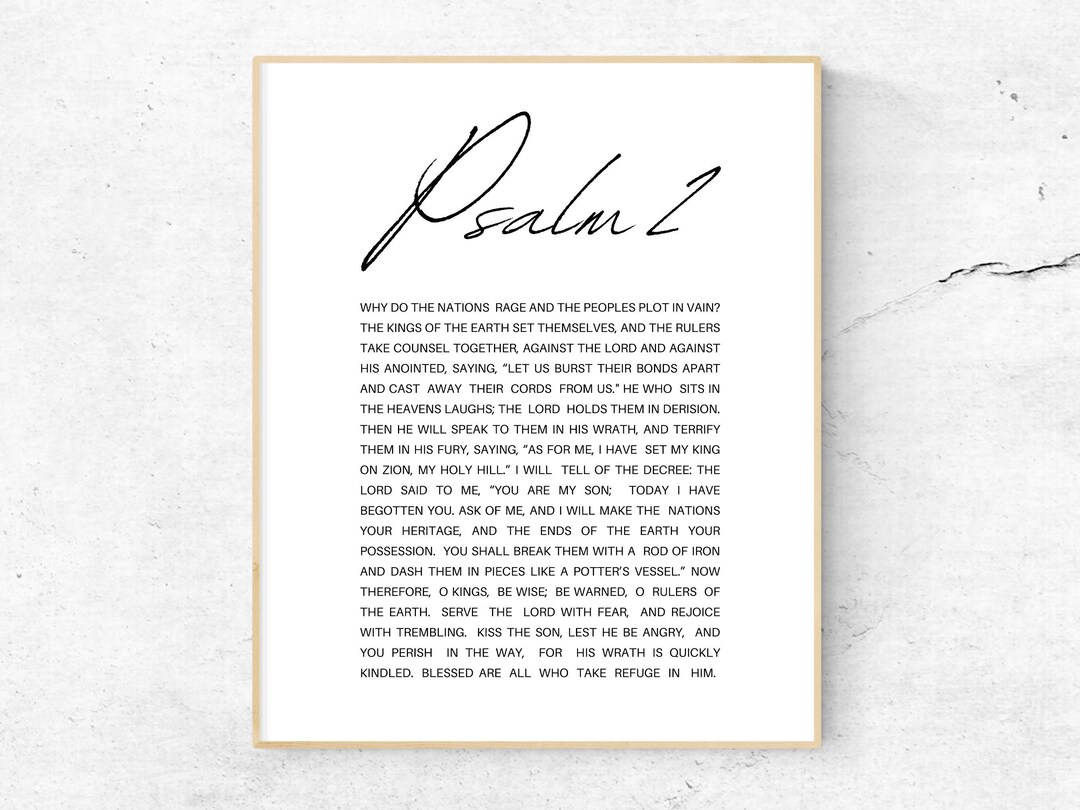 Psalm 2
WHY DO THE NATIONS RAGE AND THE PEOPLES PLOT IN VAIN?
THE KINGS OF THE EARTH SET THEMSELVES, AND THE RULERS
TAKE COUNSEL TOGETHER, AGAINST THE LORD AND AGAINST
HIS ANOINTED, SAYING, “LET US BURST THEIR BONDS APART
AND CAST AWAY THEIR CORDS FROM US." HE WHO SITS IN
THE HEAVENS LAUGHS; THE LORD HOLDS THEM IN DERISION.
THEN HE WILL SPEAK TO THEM IN HIS WRATH, AND TERRIFY
THEM IN HIS FURY, SAYING, “AS FOR ME, I HAVE SET MY KING
ON ZION, MY HOLY HILL.” I WILL TELL OF THE DECREE: THE
LORD SAID TO ME, “YOU ARE MY SON; TODAY I HAVE
BEGOTTEN YOU. ASK OF ME, AND I WILL MAKE THE NATIONS
YOUR HERITAGE, AND THE ENDS OF THE EARTH YOUR
POSSESSION. YOU SHALL BREAK THEM WITH A ROD OF IRON
AND DASH THEM IN PIECES LIKE A POTTER’S VESSEL.” NOW
THEREFORE, O KINGS, BE WISE; BE WARNED, O RULERS OF
THE EARTH. SERVE THE LORD WITH FEAR, AND REJOICE
WITH TREMBLING. KISS THE SON, LEST HE BE ANGRY, AND
YOU PERISH IN THE WAY, FOR HIS WRATH IS QUICKLY
KINDLED. BLESSED ARE ALL WHO TAKE REFUGE IN HIM.